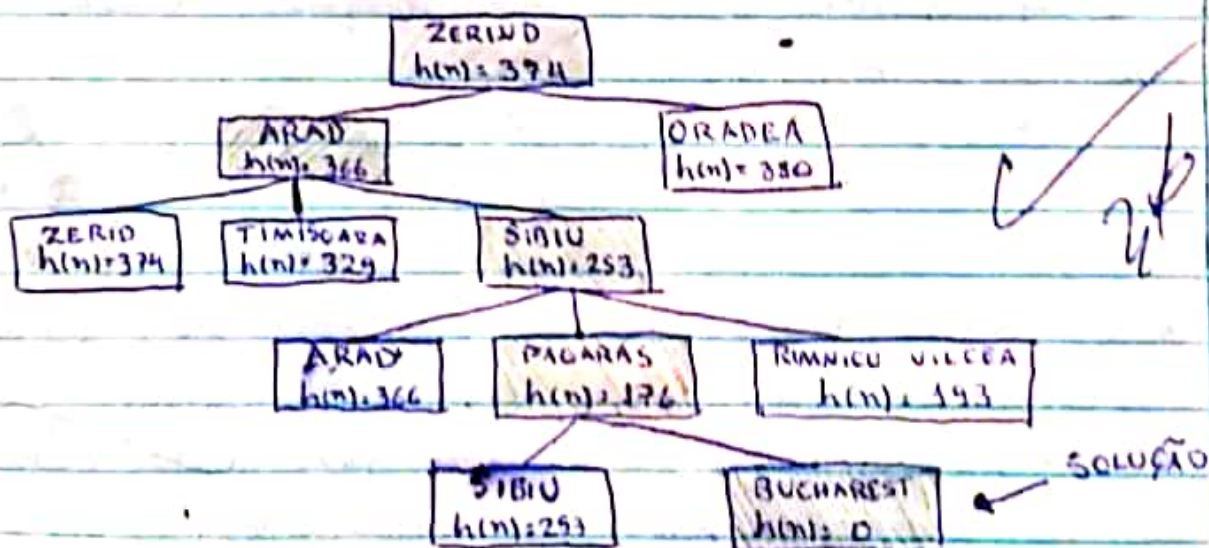 ZERIND
h(n)= 374
ARAD
h(n)= 366
ORADEA
h(n)= 380
ZERID
h(n)=374
TIMISOARA
h(n)= 329
SIBIU
h(n)=253
ARAD
h(n)=366
FAGARAS
h(n)=176
RIMNICU VILCEA
h(n)= 193
SIBIU
h(n)=253
BUCHAREST
h(n)= 0
SOLUÇÃO